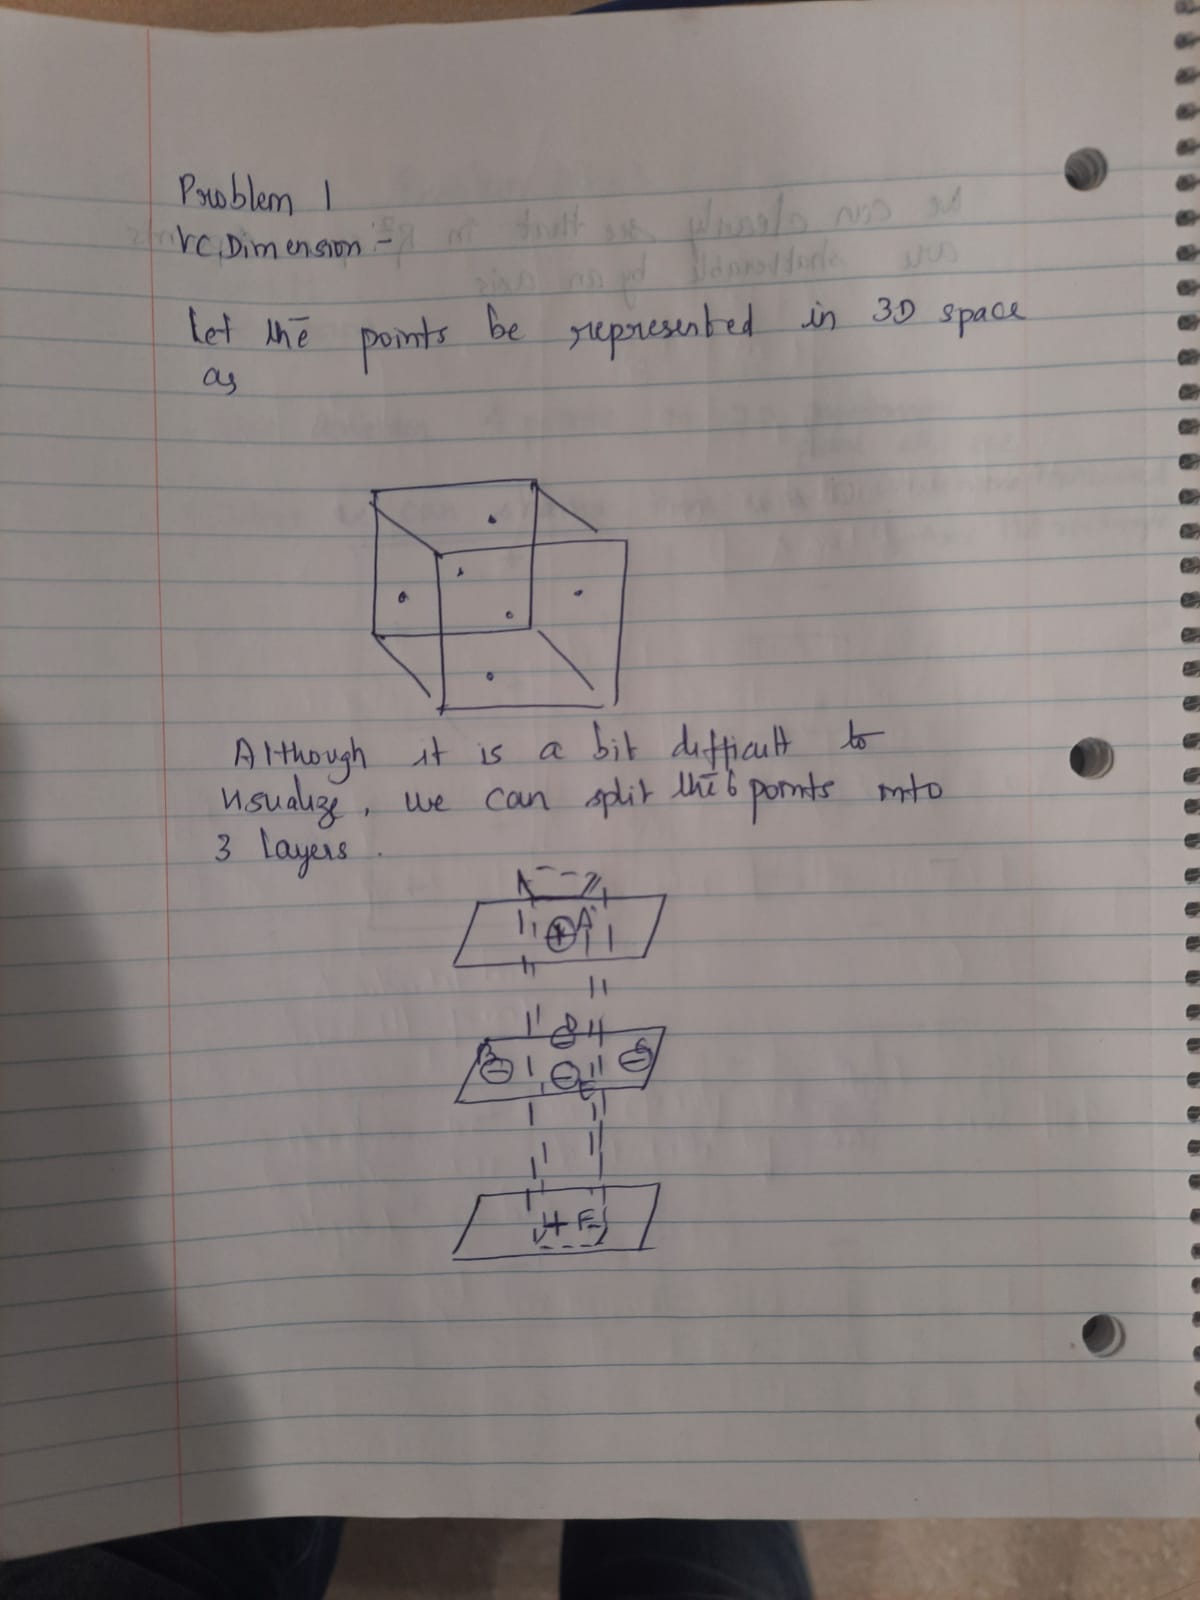 Problem 1
VC Dimension :-
Let the points be represented in 3D space
as
Although it is a bit difficult to
visualize, we can split the 6 points into
3 layers.
+ A
D
B - - -
E
+ F